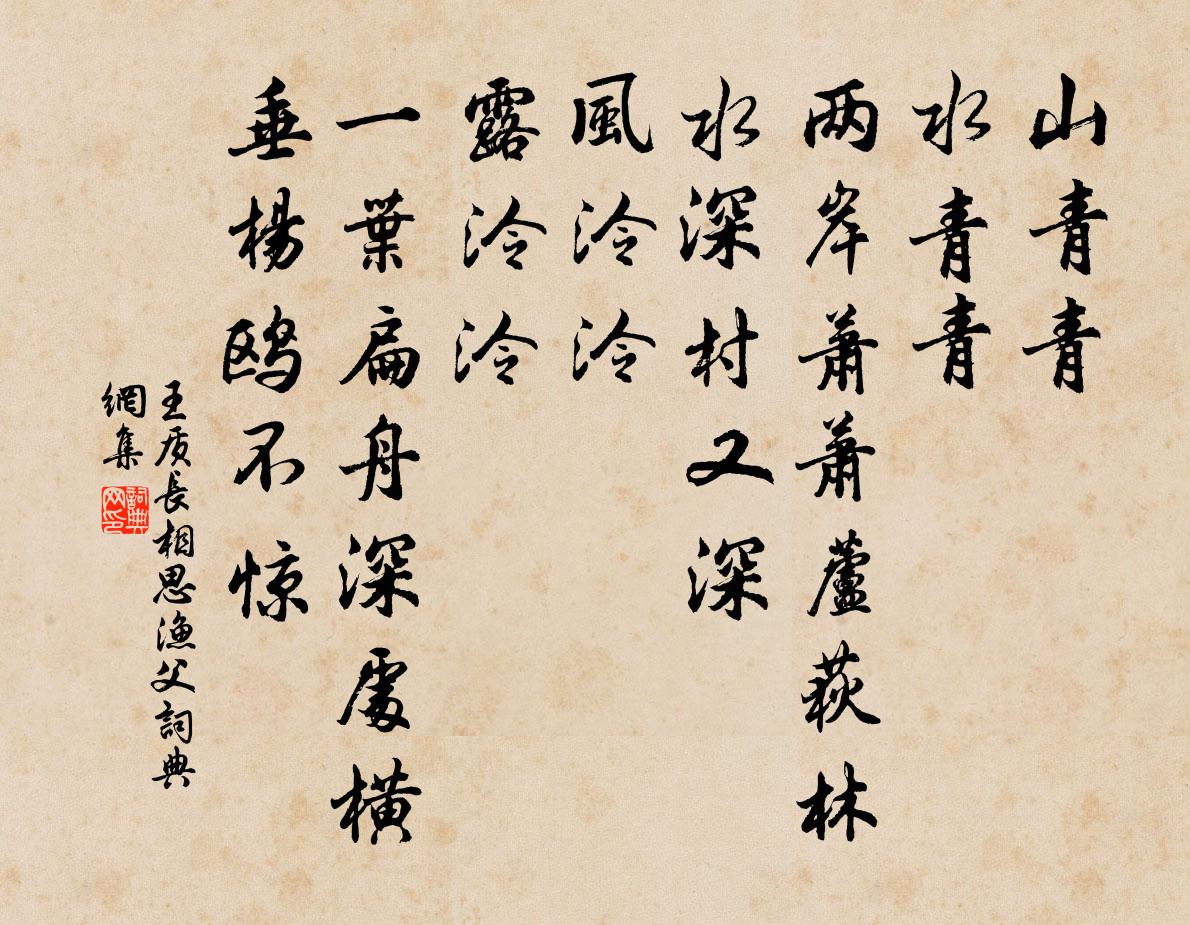 山青青
水青青
两岸萧萧蘆荻林
水深村又深
風泠泠
露泠泠
一葉扁舟深處橫
垂楊鸥不惊
王质長相思漁父詞典
網集
詞典
网印